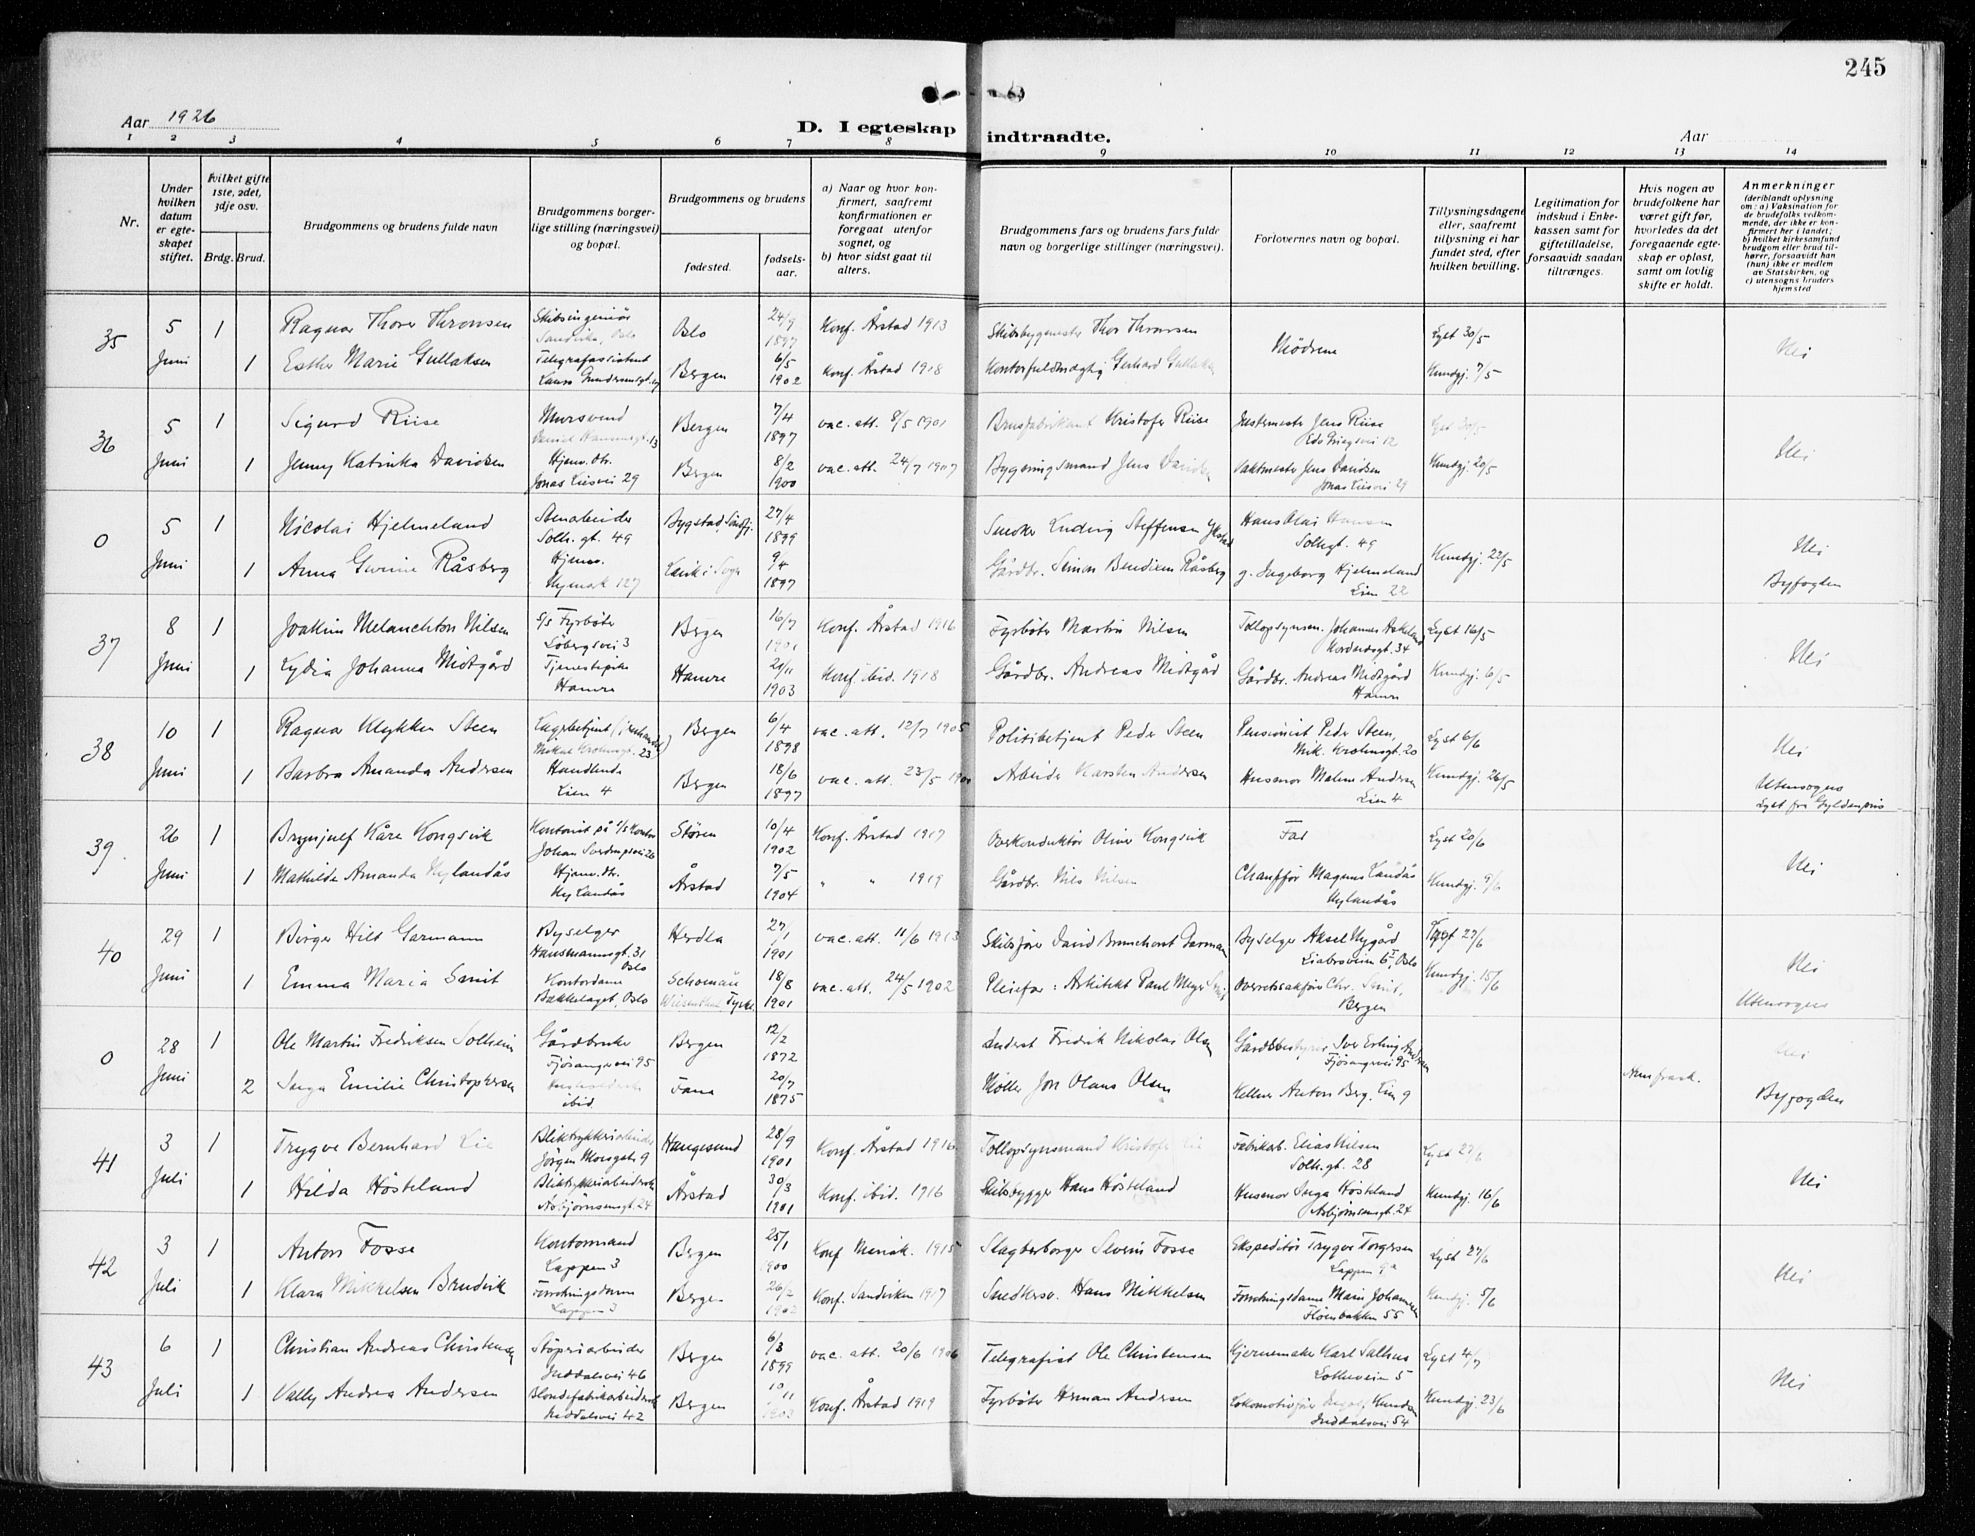 245
Aar 1926
D. I egteskap indtraadte.
Aar
1 2 3 4 5 6 7 8 9 10 11 12 13 14
Nr.
Under hvilken datum er egteskapet stiftet.
hvilket gifte 1ste, 2det, 3dje osv.
Brdg. Brud.
Brudgommens og brudens fulde navn
Brudgommens borgerlige stilling (næringsvei) og bopæl.
Brudgommens og brudens
fødested.
fødselsaar.
a) Naar og hvor konfirmert, saafremt konfirmationen er foregaat utenfor sognet, og
b) hvor sidst gaat til alters.
Brudgommens fars og brudens fars fulde navn og borgerlige stillinger (næringsvei).
Forlovernes navn og bopæl.
Tillysningsdagene eller, saafremt tillysning ei har fundet sted, efter hvilken bevilling.
Legitimation for indskud i Enkekassen samt for giftetilladelse, forsaavidt saadan tiltrænges.
Hvis nogen av brudefolkene har været gift før, hvorledes da det foregaaende egteskap er opløst, samt om lovlig skifte er holdt.
Anmerkninger (deriblandt oplysning om: a) Vaksination for de brudefolks vedkommende, der ikke er konfirmert her i landet; b) hvilket kirkesamfund brudgom eller brud tilhører, forsaavidt han (hun) ikke er medlem av Statskirken, og c) utensogns bruders hjemsted
35 5 Juni 1 Ragnar Thorer Thronsen Skibsingeniør Sandvika, Oslo Oslo 24/9 1897 Konf. Årstad 1913 Skibsbygmester Thor Thronsen Mødrene Lyst 30/5 Nei
1 Esther Marie Gullaksen Telegrafassistent Bergen 6/5 1902 Konf. Årstad 1918 Kontorfuldmægtig Gerhard Gullaksen Kundgj. 7/5
36 5 Juni 1 Sigurd Riise Mursvend Bergen 7/4 1897 vac. att. 8/5 1901 Brusfabrikant Kristofer Riise Justermester Jens Riise Edv Griegsvei 12 Lyst 30/5 Nei
1 Jenny Katinka Davidsen Hjemv. dtr. Jonas Liesvei 29 Bergen 8/2 1900 vac. att. 24/7 1907 Bygningsmand Jens Davidsen Vaktmester Jens Davidsen Jonas Liesvei 29 Kundgj. 20/5
0 5 Juni 1 Nicolai Hjelmeland Stenarbeider Solh. gt. 49 Bygstad, Søndfj. 27/4 1899 Snedker Ludvig Steffensen Hans Olai Hansen Solhgt. 49 Kundgj. 22/5 Nei
1 Anna Råsberg Hjemv. Nymark 127 Sogn 9/4 1897 Gårdbr. Simon Bendixen Råsberg g. Ingeborg Hjelmeland Lien 22 Byfogden
37 8 Juni 1 Joakim Melanchton Nilsen S/s Fyrbøter Løbergsvei 3 Bergen 16/7 1901 Konf. Årstad 1916 Fyrbøter Martin Nilsen Tollopsynsm. Johannes Askeland 34 Lyst 16/5 Nei
1 Lydia Johanna Midtgård Tjenestepike Hamre Hamre 20/11 1903 Konf. ibid. 1918 Gårdbr. Andreas Midtgård Gårdbr. Andreas Midtgård Hamre Kundgj. 6/5
38 10 Juni 1 Ragnar Klykken Steen Lagerbetjent Mikal Krohnsgt. 23 Bergen 6/4 1898 vac. att. 12/7 1905 Politibetjent Peder Steen Pensionist Peder Steen, Mik. Krohnsgt. 20 Lyst 6/6 Nei
1 Barbra Amanda Andersen Handlende Lien 4 Bergen 18/6 1897 vac. att. 23/5 Arbeider Karsten Andersen Husmor Malene Andersen Lien 4 Kundgj. 26/5 Utensogns Lyst fra Gyldenpris
39. 26 Juni 1 Brynjulf Kåre Kongsvik Kontorist på Johan Sverdrupsvei 26 Støren 10/4 1902 Konf. Årstad 1917 Overkonduktør Oliver Kongsvik Far Lyst 20/6 Nei
1 Mathilde Amanda Nylandås Hjemv. dtr. Ny Landås Årstad 7/5 1904 " " 1919 Gårdbr. Nils Nilsen Chauffør Magnus Landås Nylandås Kundgj. 9/6
40 29 Juni 1 Birger Hilt Garmann Byselger Hausmannsgt. 31 Oslo Herdla 27/1 1901 vac. att. 11/6 1913 Skibsfører David Brunchorst Garmann Byselger Aksel Nygård Liabrovein 6 I, Oslo 27/6 Nei
1 Emma Maria Smit Kontordame Bækkelaget, Oslo 18/8 1901 vac. att. 24/5 1902 Pleiefar: Arkitekt Paul Meyer Smit Overretssakfører Chr. Smit, Bergen Kundgj. 15/6 Utensogns
0 28 Juni 1 Ole Martin Fredriksen Solheim Gårdbruker Fjøsangervei 95 Bergen 12/2 1872 Fredrik Nikolai Olsen Gårdsbestyrer Iver Erling Andersen Fjøsangervei 95 Nei
2 Inga Emilie Christophersen ibid. Fana 20/7 1875 Møller Jon Olaus Olsen Kellner Anton Berg, Lien 9 Byfogden
41 3 Juli 1 Trygve Bernhard Lie Bliktrykkeriarbeider Jørgen Moesgate 9 Haugesund 28/9 1901 Konf. Årstad 1916 Tollopsynsmand Kristofer Lie Fabrikarb. Elias Nilsen Solh. gt. 28 Lyst 27/6 Nei
1 Hilda Høsteland Bliktrykkeriarbeiderske Asbjørnsensgt. 24 Årstad 30/3 1901 Konf. ibid. 1916 Skibsbygger Hans Høsteland Husmor Inga Høsteland Asbjørnsensgt. 24 Kundgj. 16/6
42 3 Juli 1 Anton Fosse Kontormand Lappen 3 Bergen 25/1 1900 Konf 1915 Slagterborger Severin Fosse Ekspeditør Trygve Torgersen Lappen 9a Lyst 27/6 Nei
1 Klara Mikkelsen Brudvik Forretningsdame Lappen 3 Bergen 26/2 1902 Konf. Sandviken 1917 Snedkersv. Hans Mikkelsen Forretningsdame Marie Johannesen Fløenbakken 55 Kundgj. 5/6
43 6 Juli 1 Christian Andreas Christensen Støperiarbeider Inddalsvei 46 Bergen 6/3 1899 vac. att. 20/6 1906 Telegrafist Ole Christensen Gjernemaker Karl Salhus Lotheveien 5 Lyst 4/7 Nei
1 Vally Andrea Andersen Blondefabrikarbeiderske Inddalsvei 42 Bergen 10/11 1903 Konf. Årstad 1919 Fyrbøter Herman Andersen Lokomotivfører Inddalsvei 54 Kundgj. 23/6